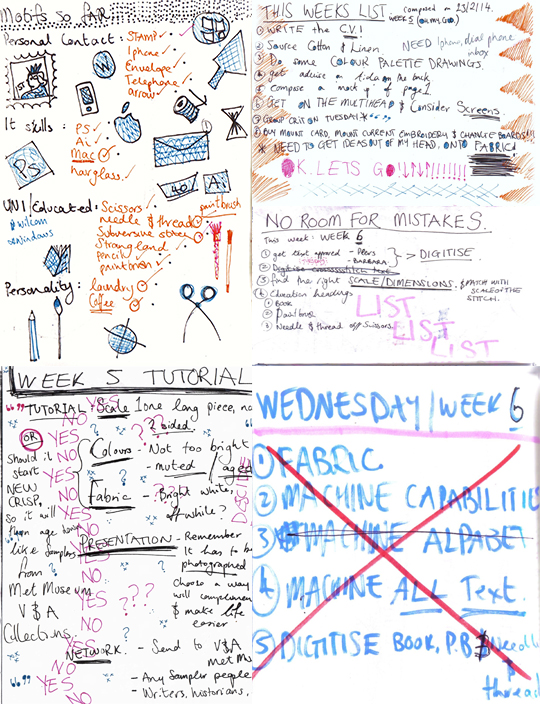 Motifs so far
Personal Contact: STAMP ✓
Iphone ✓
Envelope ✓
Telephone ✓
arrow ✓
1ST
It skills: PS ✓
Ai ✓
Mac ✓
hourglass ✓
PS
40/
Ai
UNI/Educated: Scissors
needle & thread
Subversive stitch
Strongland
pencil
paintbrush
paintbrush
& wilcom
eswindows
Personality: laundry
Coffee
THIS WEEKS LIST. composed on 23/2/14.
WEEK 5 (OH MY GOD)
① WRITE the C.V!
② Source Cotton & Linen.
NEED Iphone, dial phone
inbox
③ Do some COLOUR PALETTE DRAWINGS.
④ get advice on the back
⑤ Compose a mock up of page 1
⑥ GET ON THE MULTIHEAD & Consider Screens
⑦ GROUP CRIT ON TUESDAY
⑧ BUY MOUNT CARD, MOUNT CURRENT EMBROIDERY & CHANGE BOARDS!!!
* NEED TO GET IDEAS OUT OF MY HEAD, ONTO FABRIC!
OK. LETS GO!!!!!!!!!!!
NO ROOM FOR MISTAKES.
This week: WEEK 6
① get text approved - Peers
- BARBARA
> DIGITISE
② Digitise crossstitch text
③ find the right SCALE/DIMENSIONS. & MATCH WITH
SCALE OF THE
STITCH.
④ Education headings
① Book
② Paintbrush
③ Needle & thread off Scissors
LIST
LIST
LIST
WEEK 5 TUTORIAL
TUTORIAL Scale 1 one long piece, no
? sided.
OR
Should it
start
NEW
CRISP,
so it will
then age down
like samplers
from
Met Museum
V & A
Collections
YES
NO
YES
NO
YES
NO
YES
NO
YES
NO
YES
NO
YES
NO
YES
Colours - Not too bright
- muted / aged
Fabric - Bright white,
off white?
PRESENTATION - Remember
It has to be
photographed
choose a way
will complement
& make life
easier.
NETWORK - Send to V&A
Met Mus
- Any Sampler people
- Writers, historians,
WEDNESDAY/WEEK 6
① FABRIC
② MACHINE CAPABILITIE
③ MACHINE ALPABET
④ MACHINE ALL Text.
⑤ DIGITISE BOOK, P.B & Needle
thread